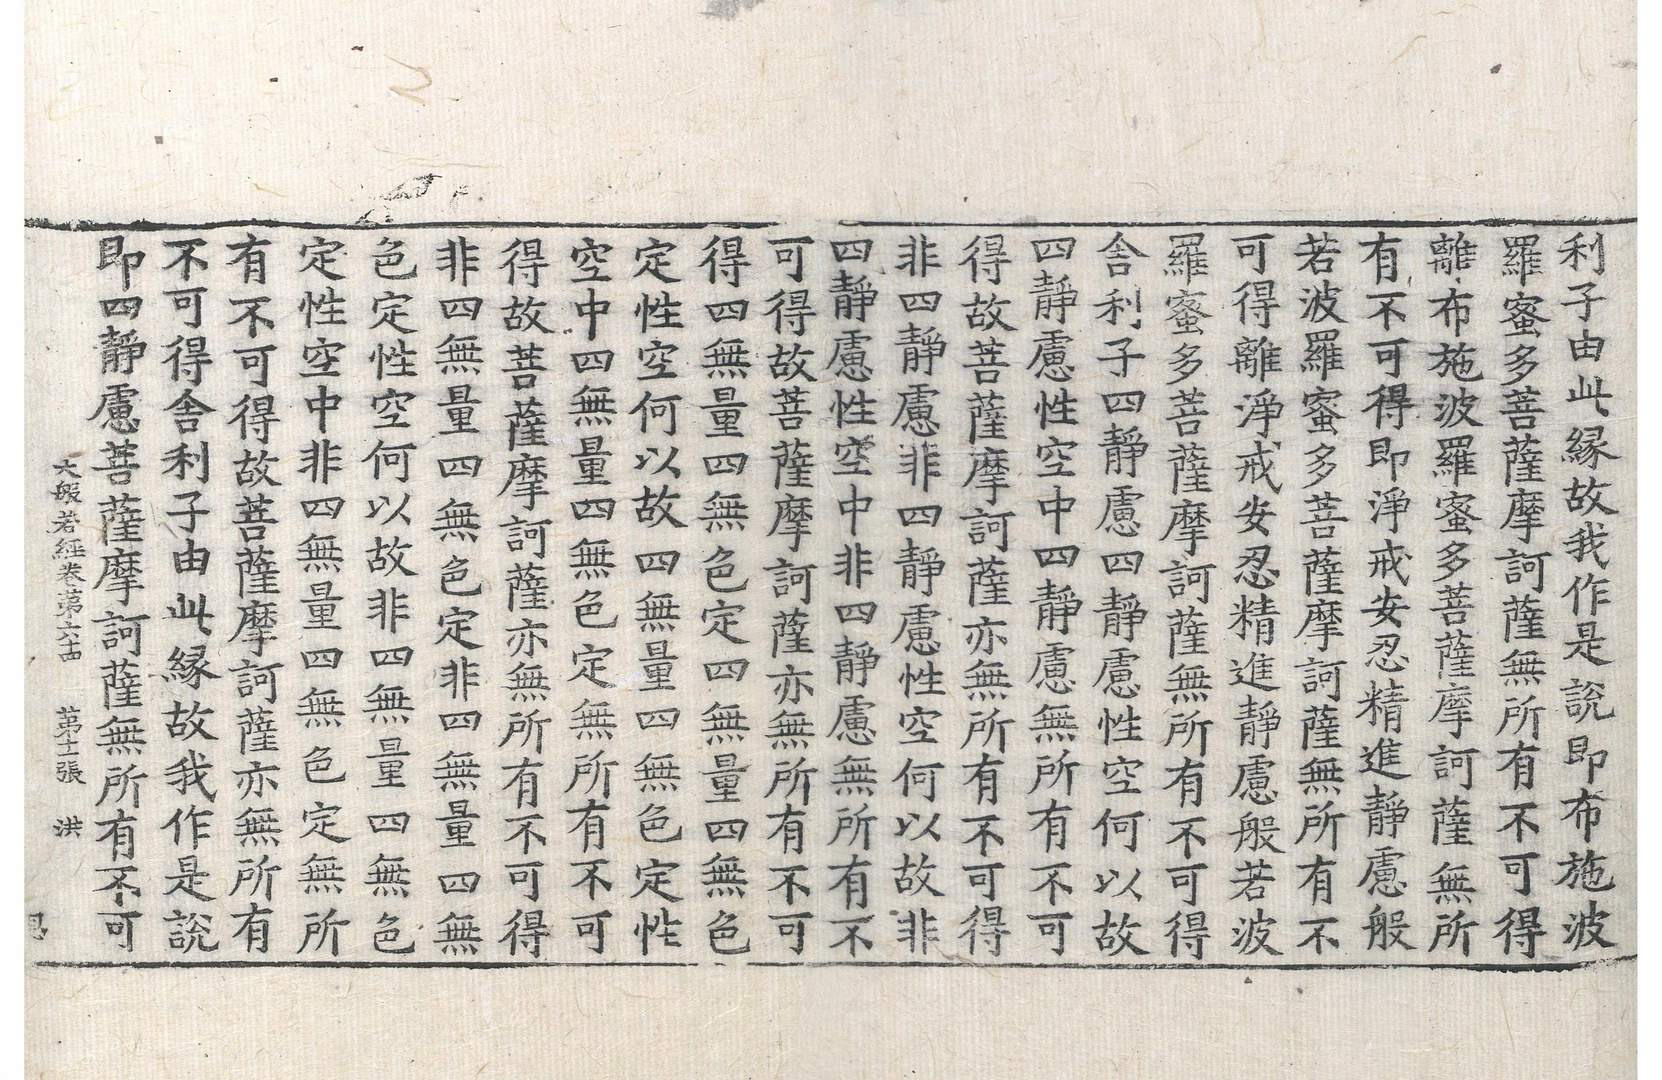 利子由此緣故我作是說即布施波
羅蜜多菩薩摩訶薩無所有不可得
離布施波羅蜜多菩薩摩訶薩無所
有不可得即淨戒安忍精進靜慮般
若波羅蜜多菩薩摩訶薩無所有不
可得離淨戒安忍精進靜慮般若波
羅蜜多菩薩摩訶薩無所有不可得
舍利子四靜慮四靜慮性空何以故
四靜慮性空中四靜慮無所有不可
得故菩薩摩訶薩亦無所有不可得
非四靜慮非四靜慮性空何以故非
四靜慮性空中非四靜慮無所有不
可得故菩薩摩訶薩亦無所有不可
得四無量四無色定四無量四無色
定性空何以故四無量四無色定性
空中四無量四無色定無所有不可
得故菩薩摩訶薩亦無所有不可得
非四無量四無色定非四無量四無
色定性空何以故非四無量四無色
定性空中非四無量四無色定無所
有不可得故菩薩摩訶薩亦無所有
不可得舍利子由此緣故我作是說
即四靜慮菩薩摩訶薩無所有不可
大般若經卷第六十四 第十一張 洪